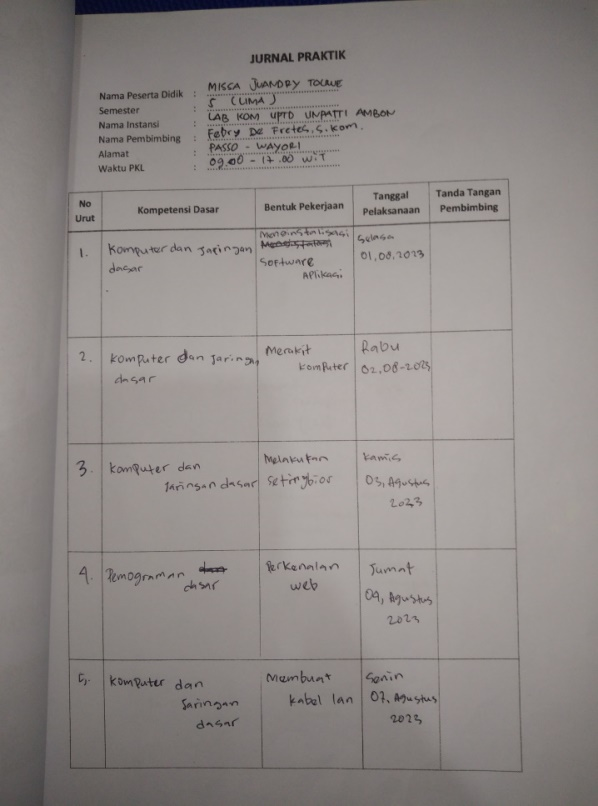 JURNAL PRAKTIK
Nama Peserta Didik : MISCA JUANDRY TOCALE
Semester : 5 (LIMA)
Nama Instansi : LAB KOM UPTD UNPATTI AMBON
Nama Pembimbing : Febry De Fretes, S.Kom.
Alamat : PASSO - WAYORI
Waktu PKL : 09.00 - 17.00 WIT
No Urut
Kompetensi Dasar
Bentuk Pekerjaan
Tanggal Pelaksanaan
Tanda Tangan Pembimbing
1. Komputer dan Jaringan dasar
Menginstalisasi
Software
Aplikasi
Selasa
01.08.2023
2. Komputer dan Jaringan dasar
Merakit
Komputer
Rabu
02.08-2023
3. Komputer dan
Jaringan dasar
Melakukan
Setingbios
Kamis
03, Agustus
2023
4. Pemograman
dasar
Perkenalan
web
Jumat
04, Agustus
2023
5. Komputer dan
Jaringan
dasar
Membuat
Kabel lan
Senin
07, Agustus
2023